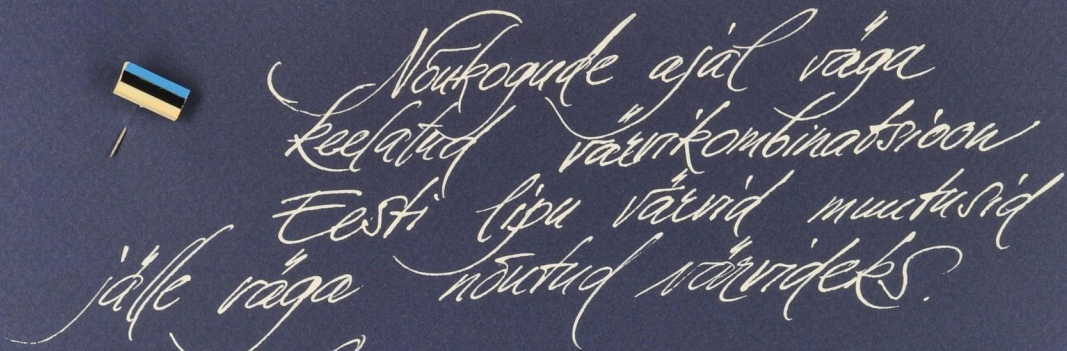 Nõukogude ajal väga
keelatud värvikombinatsioon
Eesti lipu värvid muutusid
jälle väga nõutud värvideks.